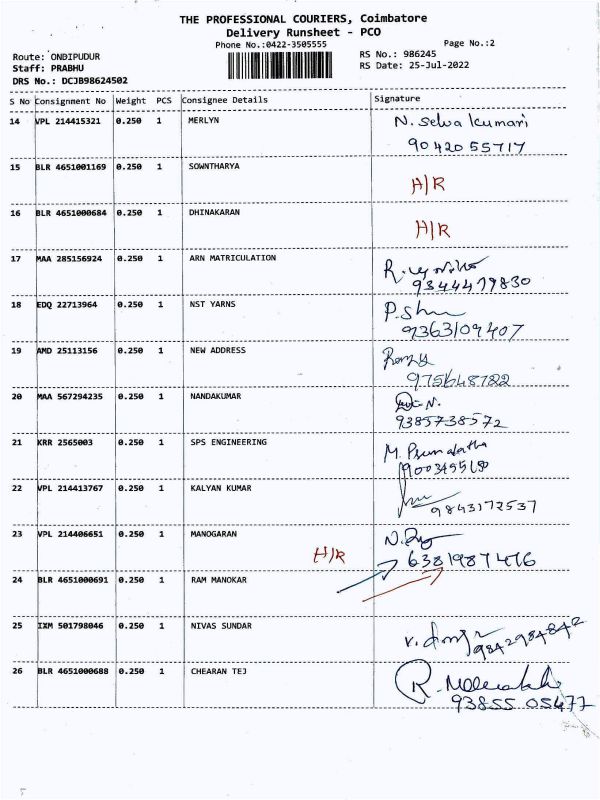 THE PROFESSIONAL COURIERS, Coimbatore
Delivery Runsheet - PCO
Phone No.:0422-3505555
Page No.:2
Route: ONDIPUDUR
RS No.: 986245
Staff: PRABHU
RS Date: 25-Jul-2022
DRS No.: DCJB98624502
S No Consignment No Weight PCS Consignee Details Signature
14 VPL 214415321 0.250 1 MERLYN N. Selva kumari
90420 55717
15 BLR 4651001169 0.250 1 SOWNTHARYA H/R
16 BLR 4651000684 0.250 1 DHINAKARAN H/R
17 MAA 285156924 0.250 1 ARN MATRICULATION
9344479830
18 EDQ 22713964 0.250 1 NST YARNS
9363109407
19 AMD 25113156 0.250 1 NEW ADDRESS
20 MAA 567294235 0.250 1 NANDAKUMAR
9385738572
21 KRR 2565003 0.250 1 SPS ENGINEERING
22 VPL 214413767 0.250 1 KALYAN KUMAR
9843172537
23 VPL 214406651 0.250 1 MANOGARAN
H/R 6381987476
24 BLR 4651000691 0.250 1 RAM MANOKAR
25 IXM 501798046 0.250 1 NIVAS SUNDAR
9842984842
26 BLR 4651000688 0.250 1 CHEARAN TEJ
93855 05477